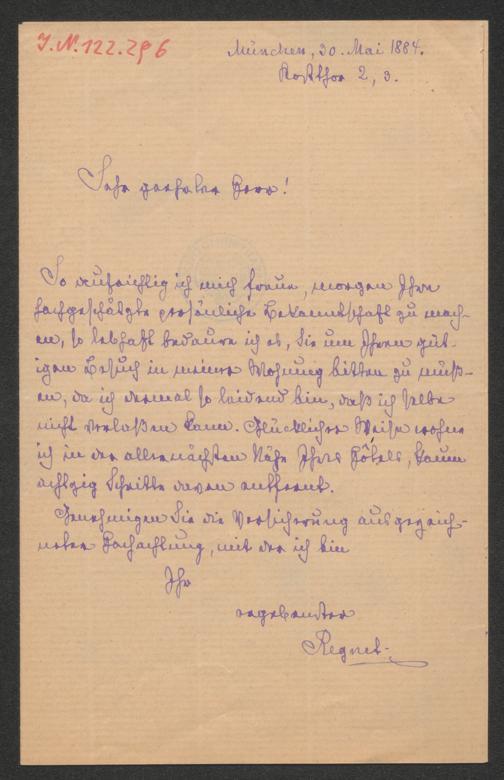 J.N. 122.296
München, 30. Mai 1884.
Kostthor 2, 3.
Sehr geehrter Herr!
So aufrichtig ich mich freue, morgen Ihre
hochgeschätzte persönliche Bekanntschaft zu mach-
en, so lebhaft bedaure ich es, Sie um Ihren güt-
igen Besuch in meiner Wohnung bitten zu müß-
en, da ich dermal so leidend bin, daß ich selbe
nicht verlaßen kann. Glücklicher Weise wohne
ich in der allernächsten Nähe Ihres Hôtels, kaum
achtzig Schritte davon entfernt.
Genehmigen Sie die Versicherung ausgezeich-
neter Hochachtung, mit der ich bin
Ihr
ergebenster
Regnet.